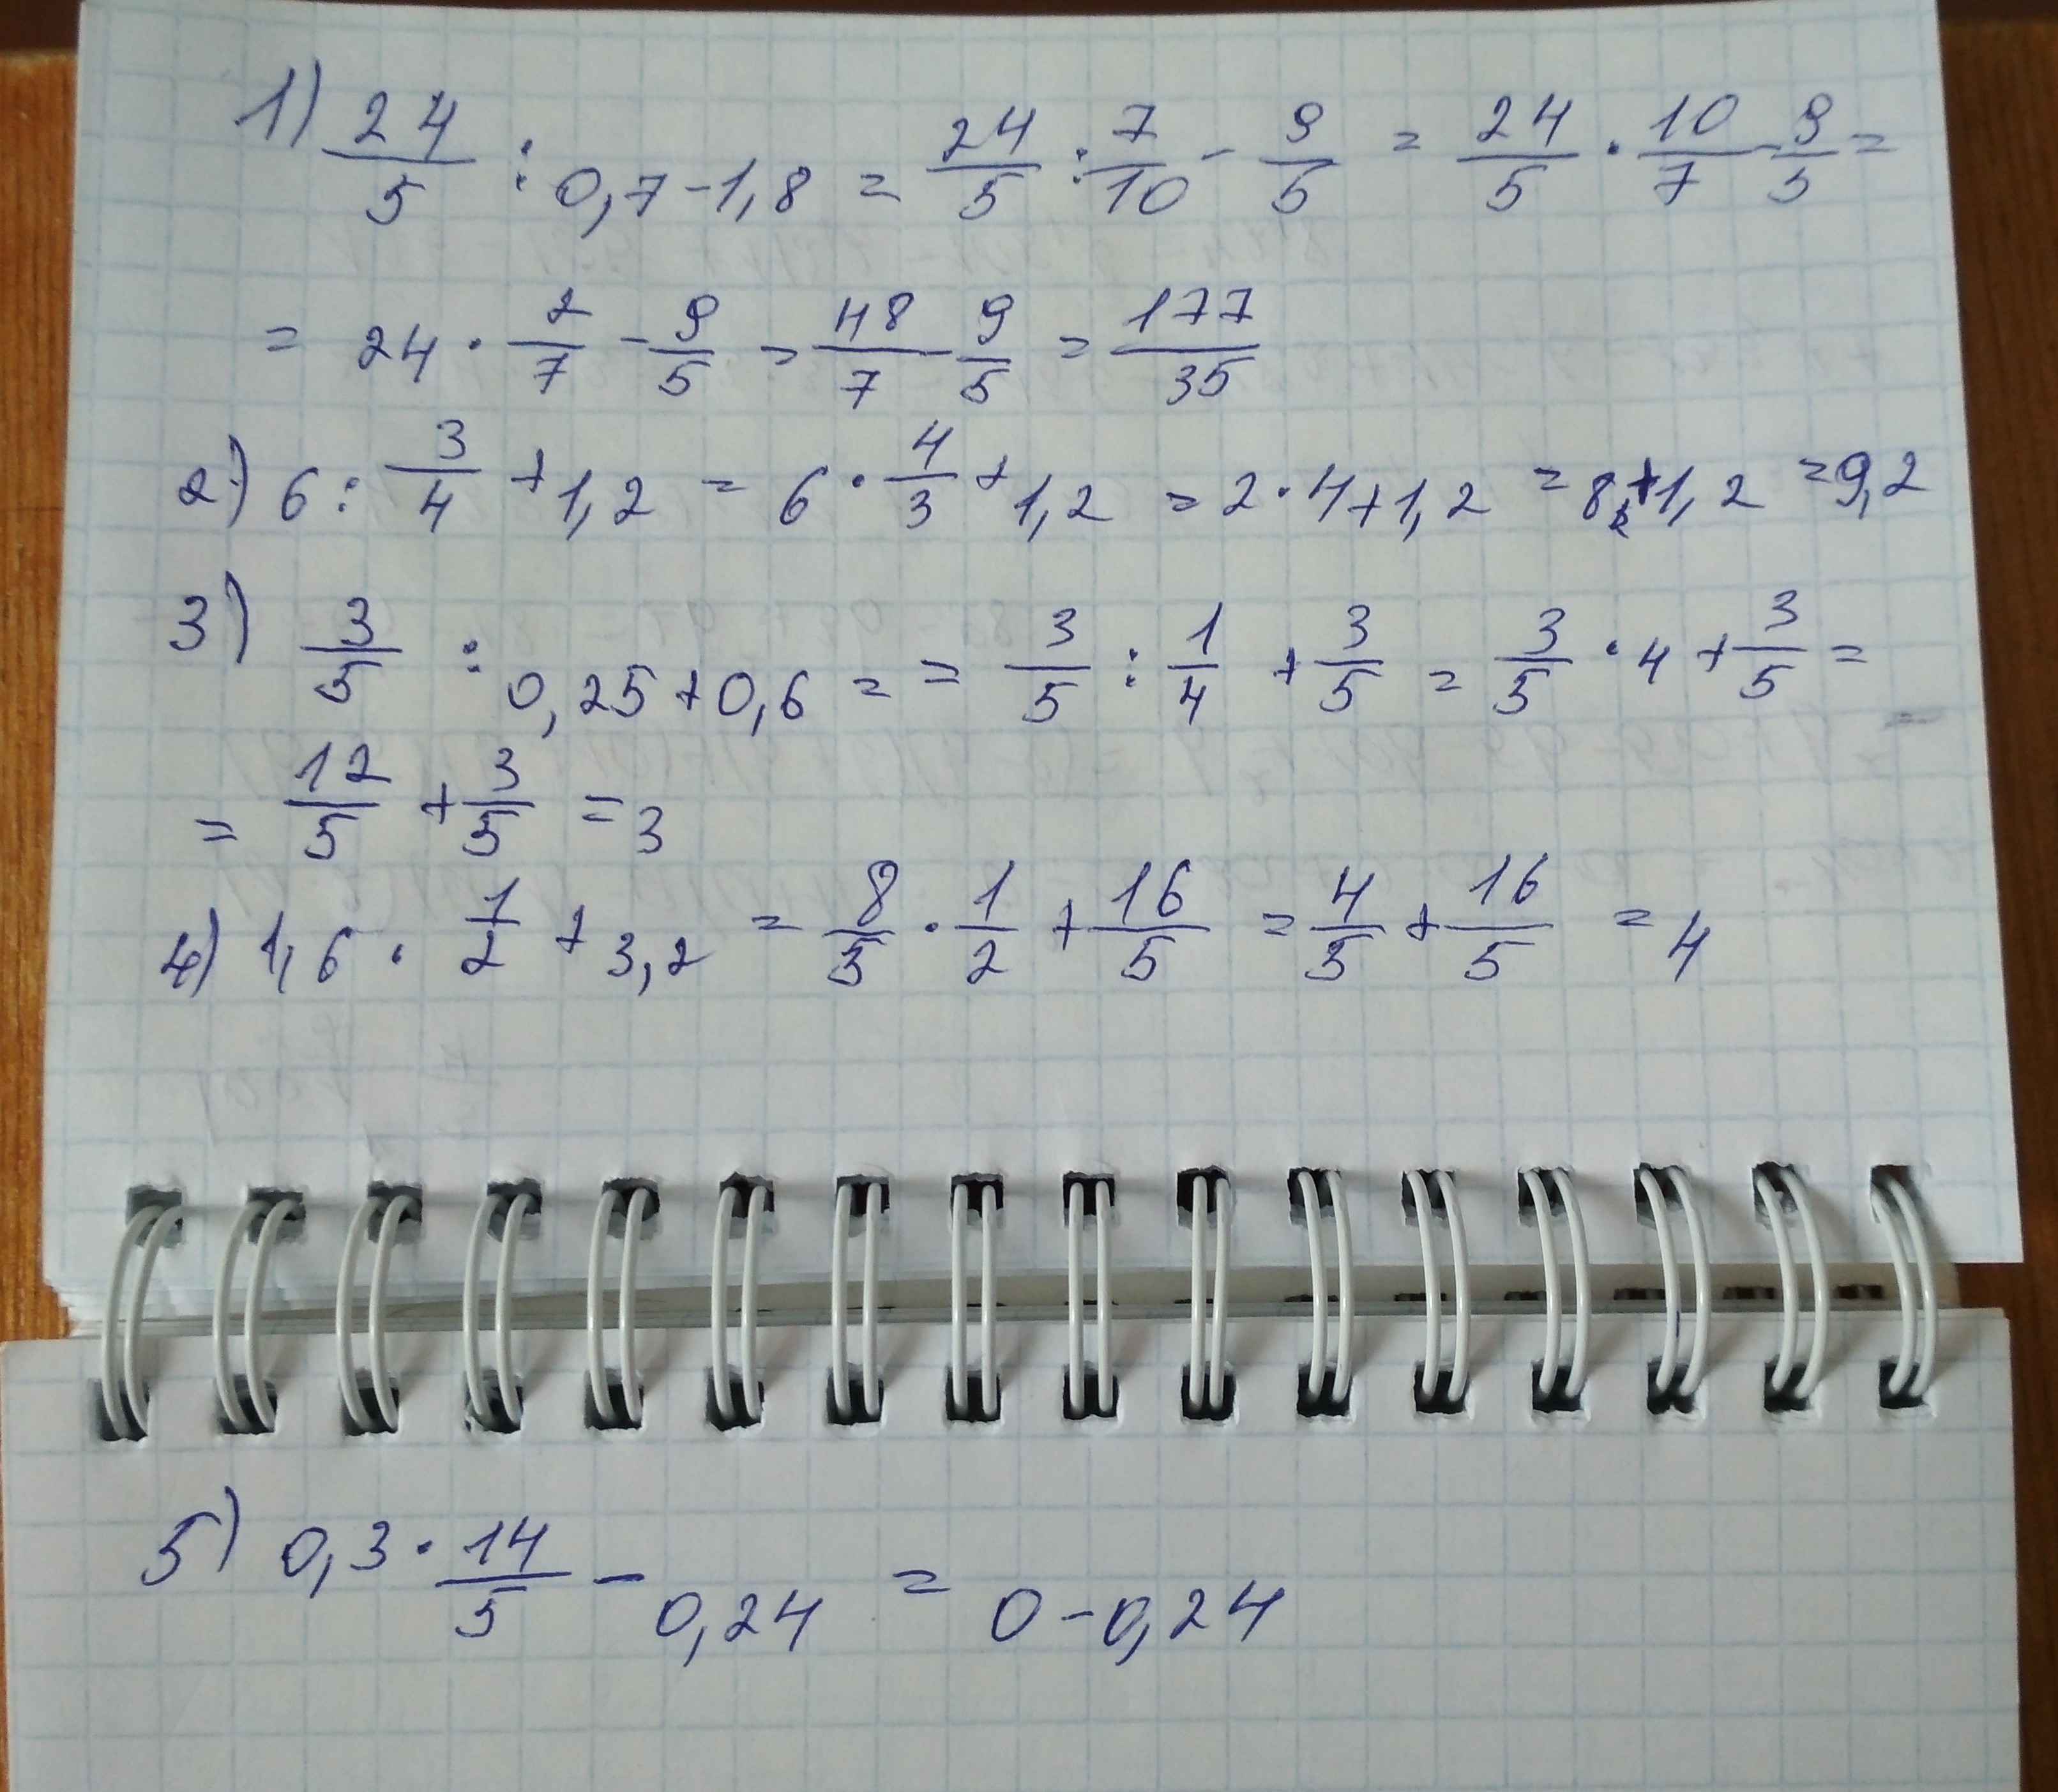 1) 24/5 : 0,7 - 1,8 = 24/5 : 7/10 - 9/5 = 24/5 · 10/7 - 9/5 =
= 24 · 2/7 - 9/5 = 48/7 - 9/5 = 177/35
2) 6 : 3/4 + 1,2 = 6 · 4/3 + 1,2 = 2 · 4 + 1,2 = 8 + 1,2 = 9,2
3) 3/5 : 0,25 + 0,6 = = 3/5 : 1/4 + 3/5 = 3/5 · 4 + 3/5 =
= 12/5 + 3/5 = 3
4) 1,6 · 1/2 + 3,2 = 8/5 · 1/2 + 16/5 = 4/5 + 16/5 = 4
5) 0,3 · 14/5 - 0,24 = 0 - 0,24